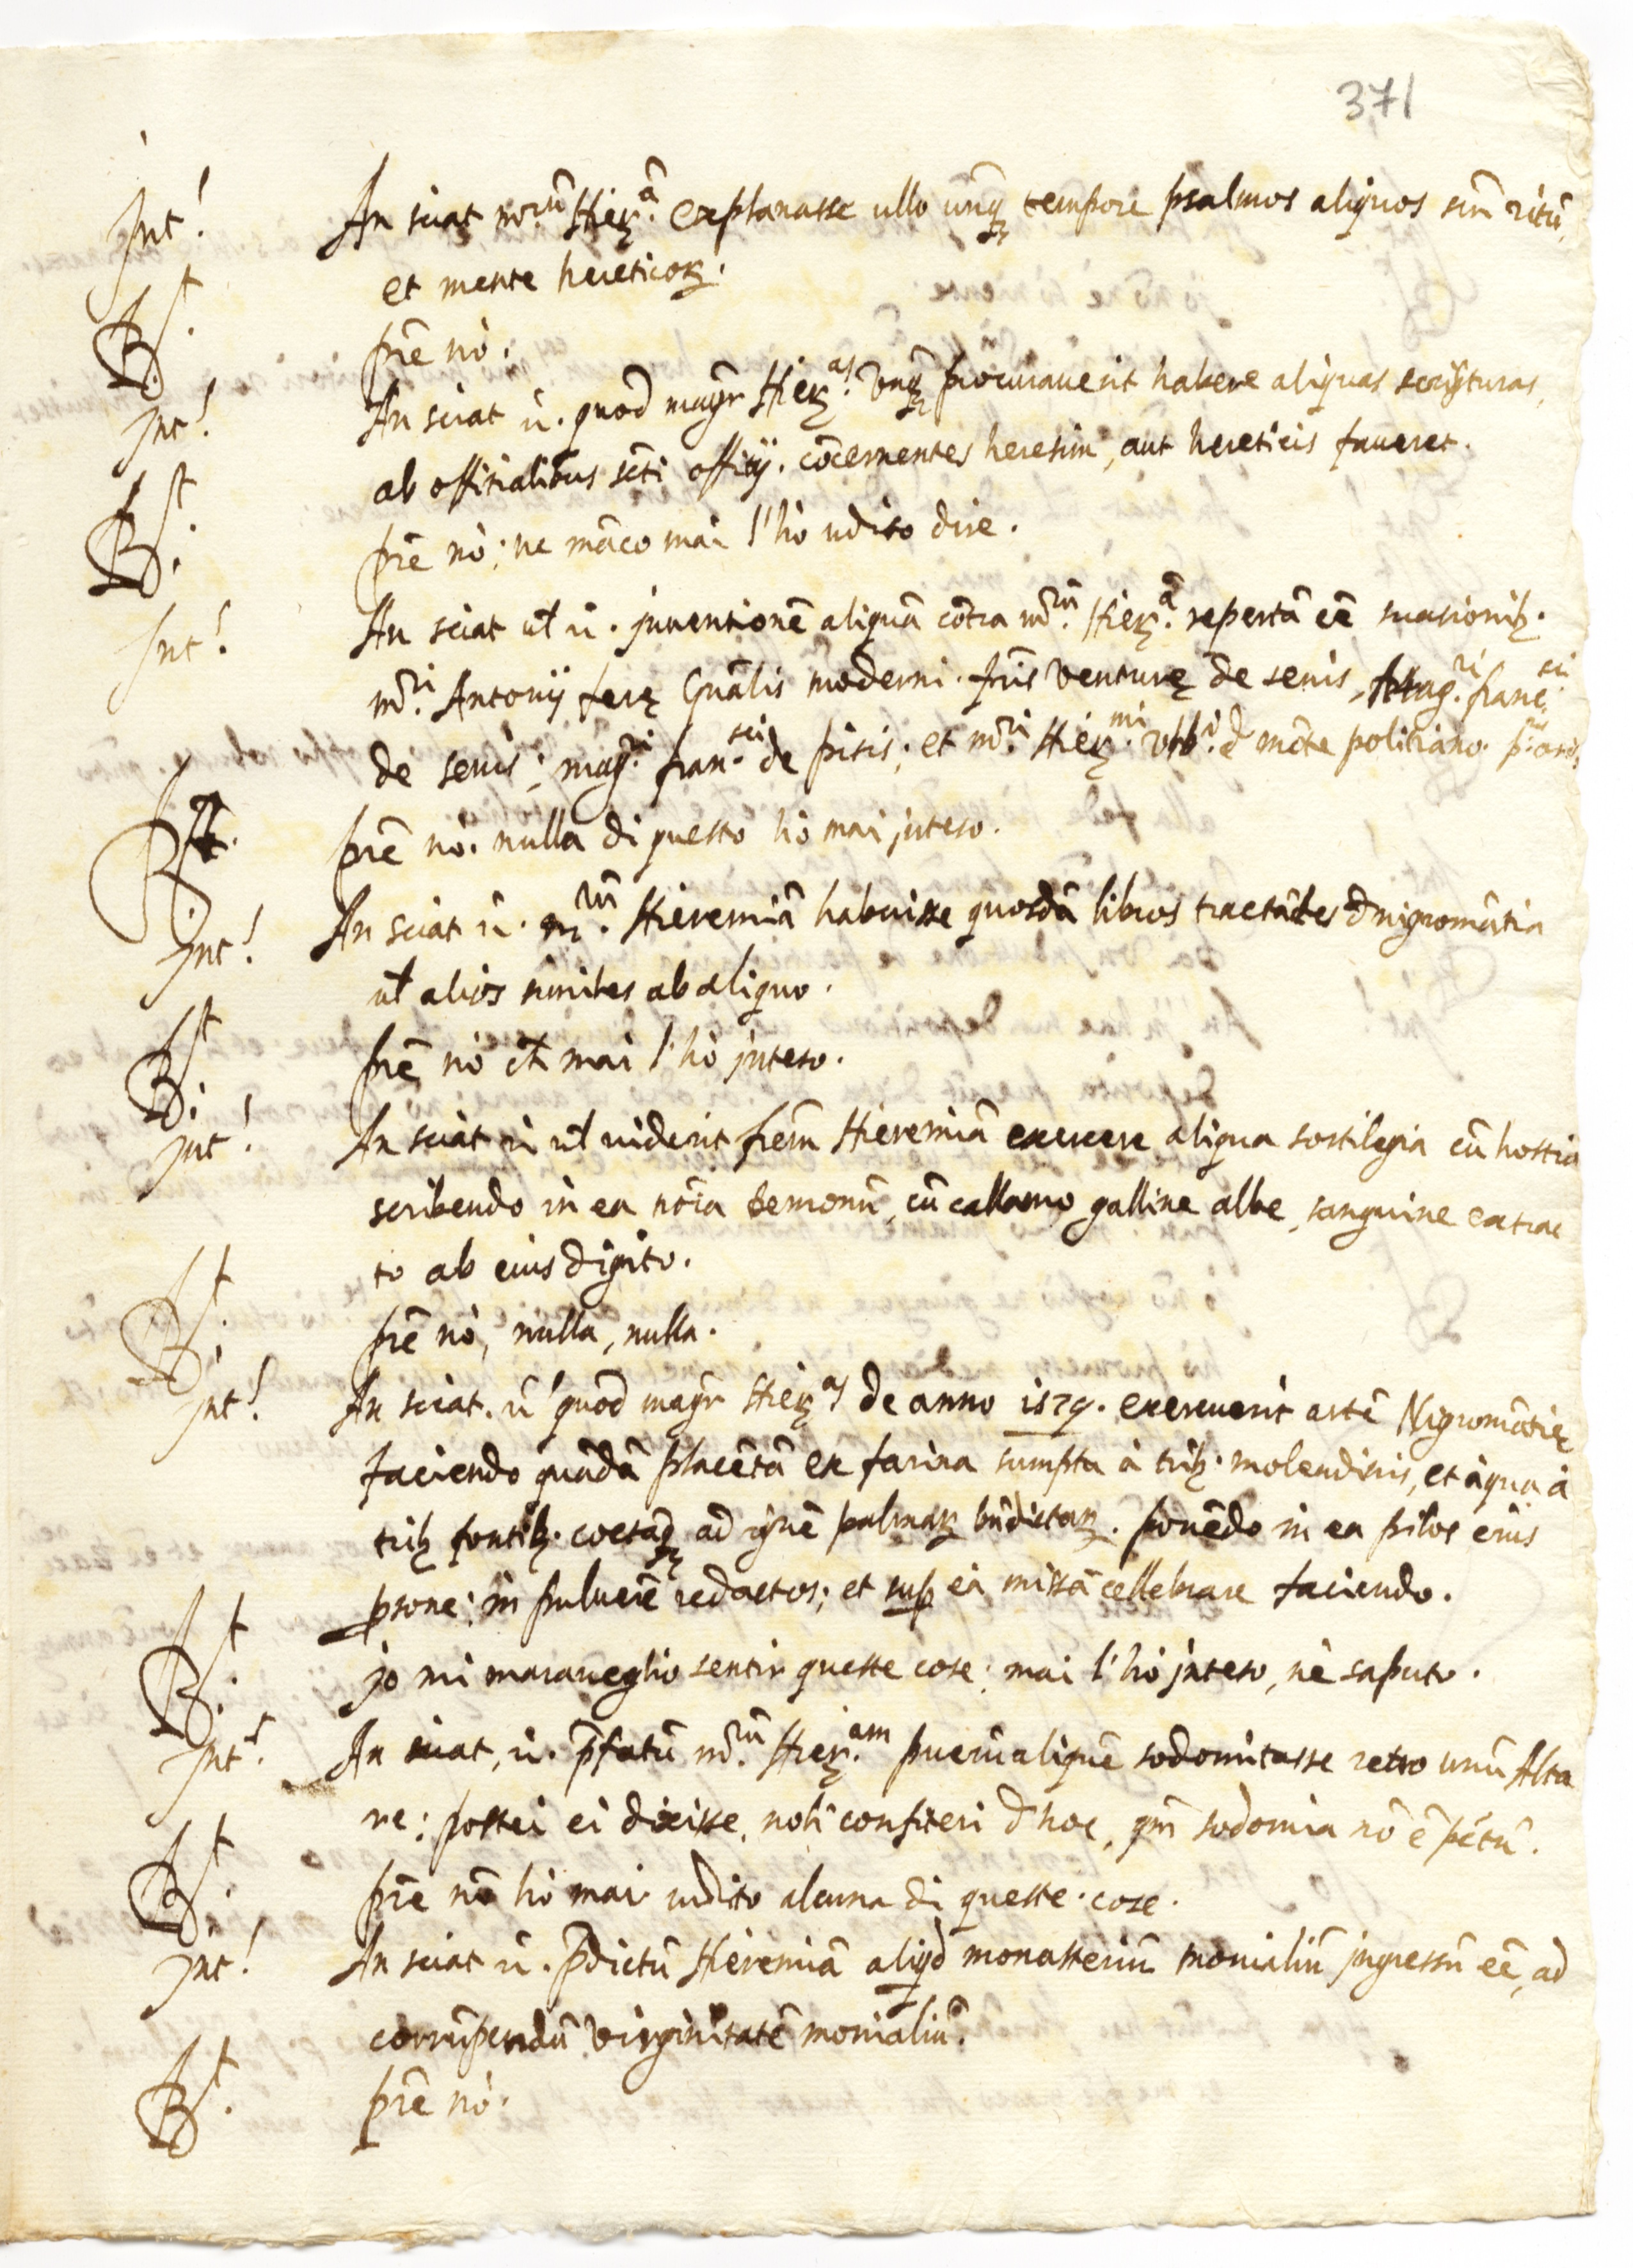 371
Int.^s An sciat m.^rum Hier.^ā explanasse ullo unq̄ tempore psalmos aliquos sm̄ ritū,
et mente hereticoꝝ.
R.^t prē nò.
Int.^s An sciat ū. quod magr̄ Hieꝝ.^as unq̄ procuraverit habere aliquas scripturas,
ab offitialibus sc̄ti offitij. cōcernentes heresim, aut hereticis faveret.
R.^t prē nò; ne māco mai l'hò udito dire.
Int.^s An sciat ul̄ ū. juventionē aliquā cōtra m̄.^m Hieꝝ.^ā repertā eē suasionib;.
m̄.^ri Antonij ferę Gn̄alis moderni. fris̄ Venturę de senis, Mag.^ri franc.^sci
de senis; mag.^ri fran.^sci de pisis; et m̄.^ri Hieꝝ.^mi d̄ mōte politiano.
R.^t prē nò. nulla di questo hò mai jnteso.
Int.^s An sciat ū. m.^rm Hieremiā habuisse quosdā libros tractātes d̄ nigromātia
ul̄ alios similes ab aliquo.
R.^t prē nò et̄ mai l'hò jnteso.
Int.^s An sciat ū ul̄ viderit frem̄ Hieremiā exercere aliqua sortilegia cū hostia
scribendo in ea nōīa demonū, cū callamo galline albe, sanguine extrac
to ab eius digito.
R.^t prē nò, nulla, nulla.
Int.^s An sciat. ū quod magr̄ Hieꝝ^as de anno 1579. exercuerit artē Nigromātię
faciendo quādā placētā ex farina sumpta à trib; molendinis, et aqua à
trib; fontib;. coctaq; ad ignē palmaꝝ bn̄dictaꝝ. ponēdo in ea pilos eius
ꝑsone: in pulverē redactos; et suꝑ eā missā cellebrare faciendo.
R.^t jo mi maraveglio sentir queste cose: mai l'hò jnteso, nè saputo.
Int.^s An sciat, ū. p̄fatū m̄.^rū Hieꝝ.^am puerū aliquē sodomitasse retro unū Alta
re; postea ei dixisse, noli confiteri d̄ hoc, qm̄ sodomia nō ē pc̄tū.
R.^t prē nō hò mai udito alcuna di queste cose.
Int.^s An sciat ū. p̄dictū Hieremiā aliqd̄ monasteriū monialiū jngressū eē, ad
corrūpendū virginitatē monialiū.
R.^t prē nò.